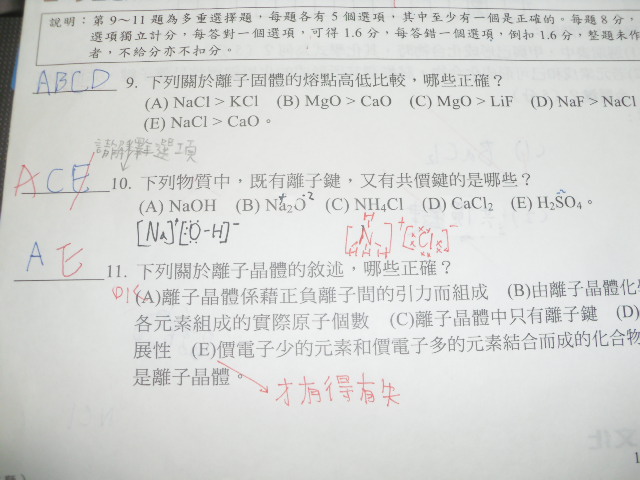 說明：第9～11題為多重選擇題，每題各有5個選項，其中至少有一個是正確的。每題8分，
選項獨立計分，每答對一個選項，可得1.6分，每答錯一個選項，倒扣1.6分，整題未作
者，不給分亦不扣分。
ABCD 9. 下列關於離子固體的熔點高低比較，哪些正確？
(A) NaCl > KCl (B) MgO > CaO (C) MgO > LiF (D) NaF > NaCl
(E) NaCl > CaO。
請解釋選項
ACE 10. 下列物質中，既有離子鍵，又有共價鍵的是哪些？
(A) NaOH (B) Na2O (C) NH4Cl (D) CaCl2 (E) H2SO4。
[Na]+[O-H]- [H N H H H]+[Cl]-
A E 11. 下列關於離子晶體的敘述，哪些正確？
(A)離子晶體係藉正負離子間的引力而組成 (B)由離子晶體化
各元素組成的實際原子個數 (C)離子晶體中只有離子鍵 (D)
展性 (E)價電子少的元素和價電子多的元素結合而成的化合物
是離子晶體。
才有得有失